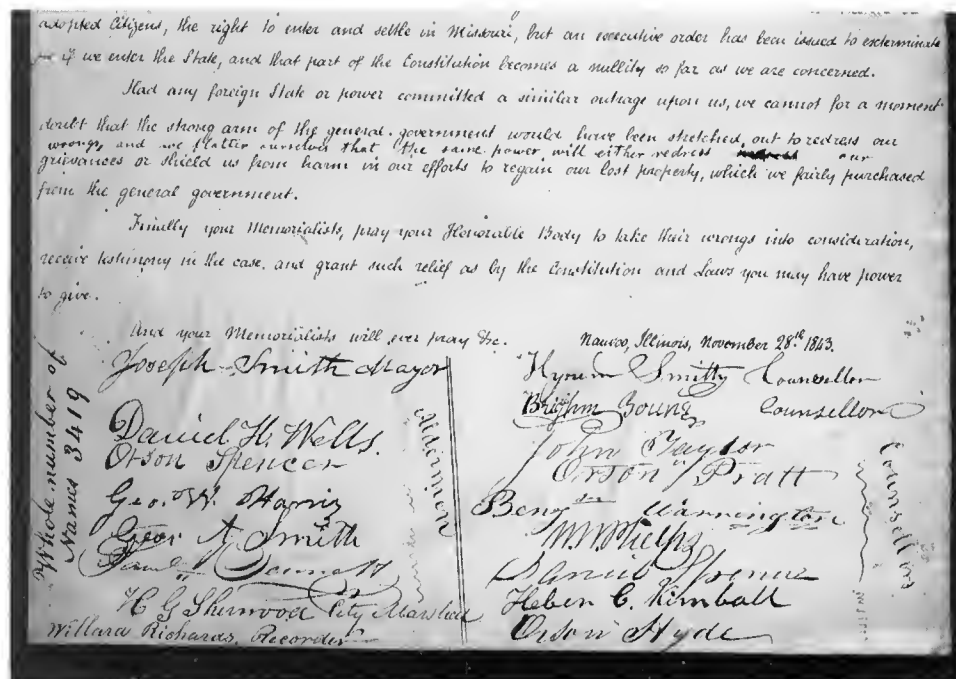 adopted Citizens, the right to enter and settle in Missouri, but an executive order has been issued to exterminate
us if we enter the State, and that part of the Constitution becomes a nullity so far as we are concerned.
Had any foreign State or power committed a similar outrage upon us, we cannot for a moment
doubt that the strong arm of the general government would have been stretched out to redress our
wrongs, and we flatter ourselves that the same power will either redress our
grievances or shield us from harm in our efforts to regain our lost property, which we fairly purchased
from the general government.
Finally your Memorialists, pray your Honorable Body to take their wrongs into consideration,
receive testimony in the case, and grant such relief as by the Constitution and Laws you may have power
to give.
And your Memorialists will ever pray &c.
Nauvoo, Illinois, November 28th. 1843.
Whole number of
Names 3419
Joseph Smith Mayor
Daniel H. Wells.
Orson Spencer
Geo. W. Harris
Geor A Smith
Saml Bennett
H G Sherwood City Marshal
Willard Richards, Recorder
Aldermen
Hyrum Smith Counsellor
Brighm Young Counsellor
John Taylor
Orson Pratt
Benjn Warrington
W. W. Phelps
Heber C. Kimball
Orson Hyde
Counsellors